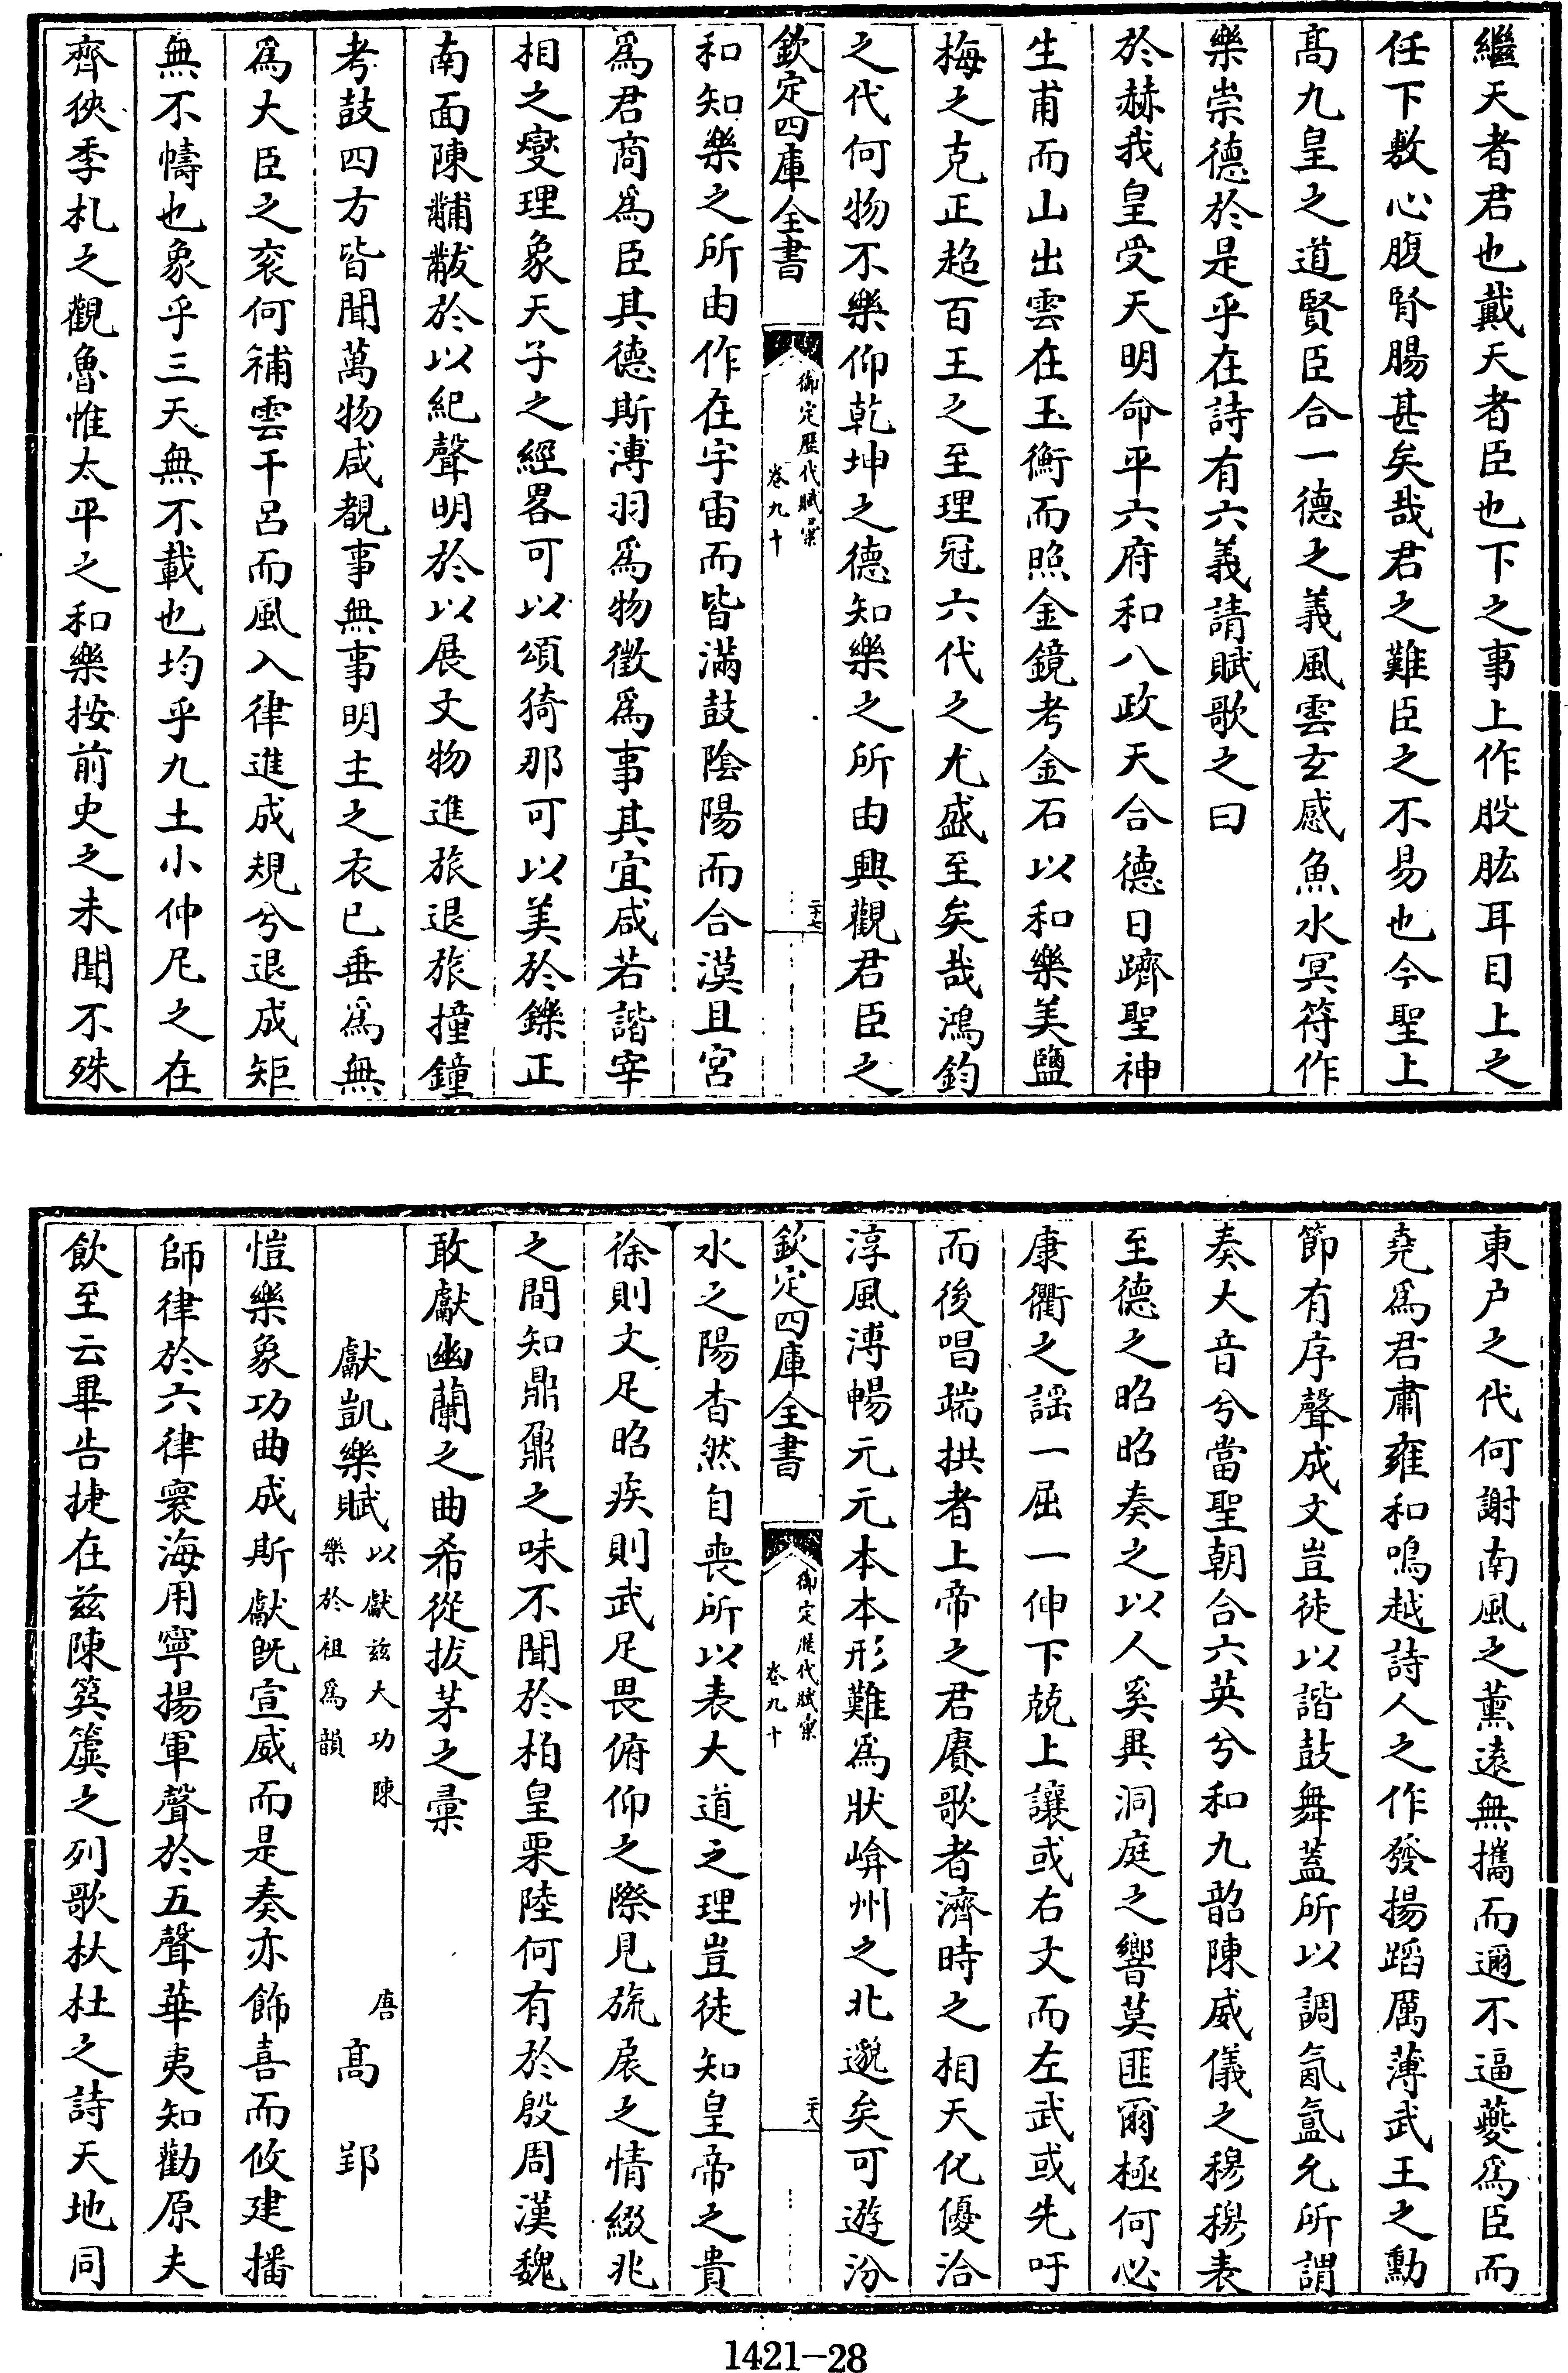 繼天者君也戴天者臣也下之事上作股肱耳目上之
任下敷心腹腎腸甚矣哉君之難臣之不易也今聖上
高九皇之道賢臣合一德之義風雲玄感魚水冥符作
樂崇德於是乎在詩有六義請賦歌之曰
於赫我皇受天明命平六府和八政天合德日躋聖神
生甫而山出雲在玉衡而照金鏡考金石以和樂美鹽
梅之克正超百王之至理冠六代之尤盛至矣哉鴻鈞
之代何物不樂仰乾坤之德知樂之所由興觀君臣之
欽定四庫全書
御定歷代賦彙
卷九十
二十七
和知樂之所由作在宇宙而皆滿鼓陰陽而合漠且宮
爲君商爲臣其德斯溥羽爲物徵爲事其宜咸若諧宰
相之燮理象天子之經畧可以頌猗那可以美於鑠正
南面陳黼黻於以紀聲明於以展文物進旅退旅撞鐘
考鼓四方皆聞萬物咸覩事無事明主之衣已垂爲無
爲大臣之衮何補雲干呂而風入律進成規兮退成矩
無不幬也象乎三天無不載也均乎九土小仲尼之在
齊狹季札之觀魯惟太平之和樂按前史之未聞不殊
東户之代何謝南風之薰遠無攜而邇不逼夔爲臣而
堯爲君肅雍和鳴越詩人之作發揚蹈厲薄武王之勳
節有序聲成文豈徒以諧鼓舞蓋所以調氤氳允所謂
奏大音兮當聖朝合六英兮和九韶陳威儀之穆穆表
至德之昭昭奏之以人奚異洞庭之響莫匪爾極何必
康衢之謡一屈一伸下兢上讓或右文而左武或先吁
而後唱端拱者上帝之君賡歌者濟時之相天化優洽
淳風溥暢元元本本形難爲狀崤州之北邈矣可遊汾
欽定四庫全書
御定歷代賦彙
卷九十
二十八
水之陽杳然自喪所以表大道之理豈徒知皇帝之貴
徐則文足昭疾則武足畏俯仰之際見旒扆之情綴兆
之間知鼎鼐之味不聞於柏皇栗陸何有於殷周漢魏
敢獻幽蘭之曲希從拔茅之彚
獻凱樂賦 以獻兹大功陳樂於祖爲韻 唐 高郢
愷樂象功曲成斯獻旣宣威而是奏亦飾喜而攸建播
師律於六律寰海用寧揚軍聲於五聲華夷知勸原夫
飲至云畢告捷在兹陳筍簴之列歌杕杜之詩天地同
1421-28